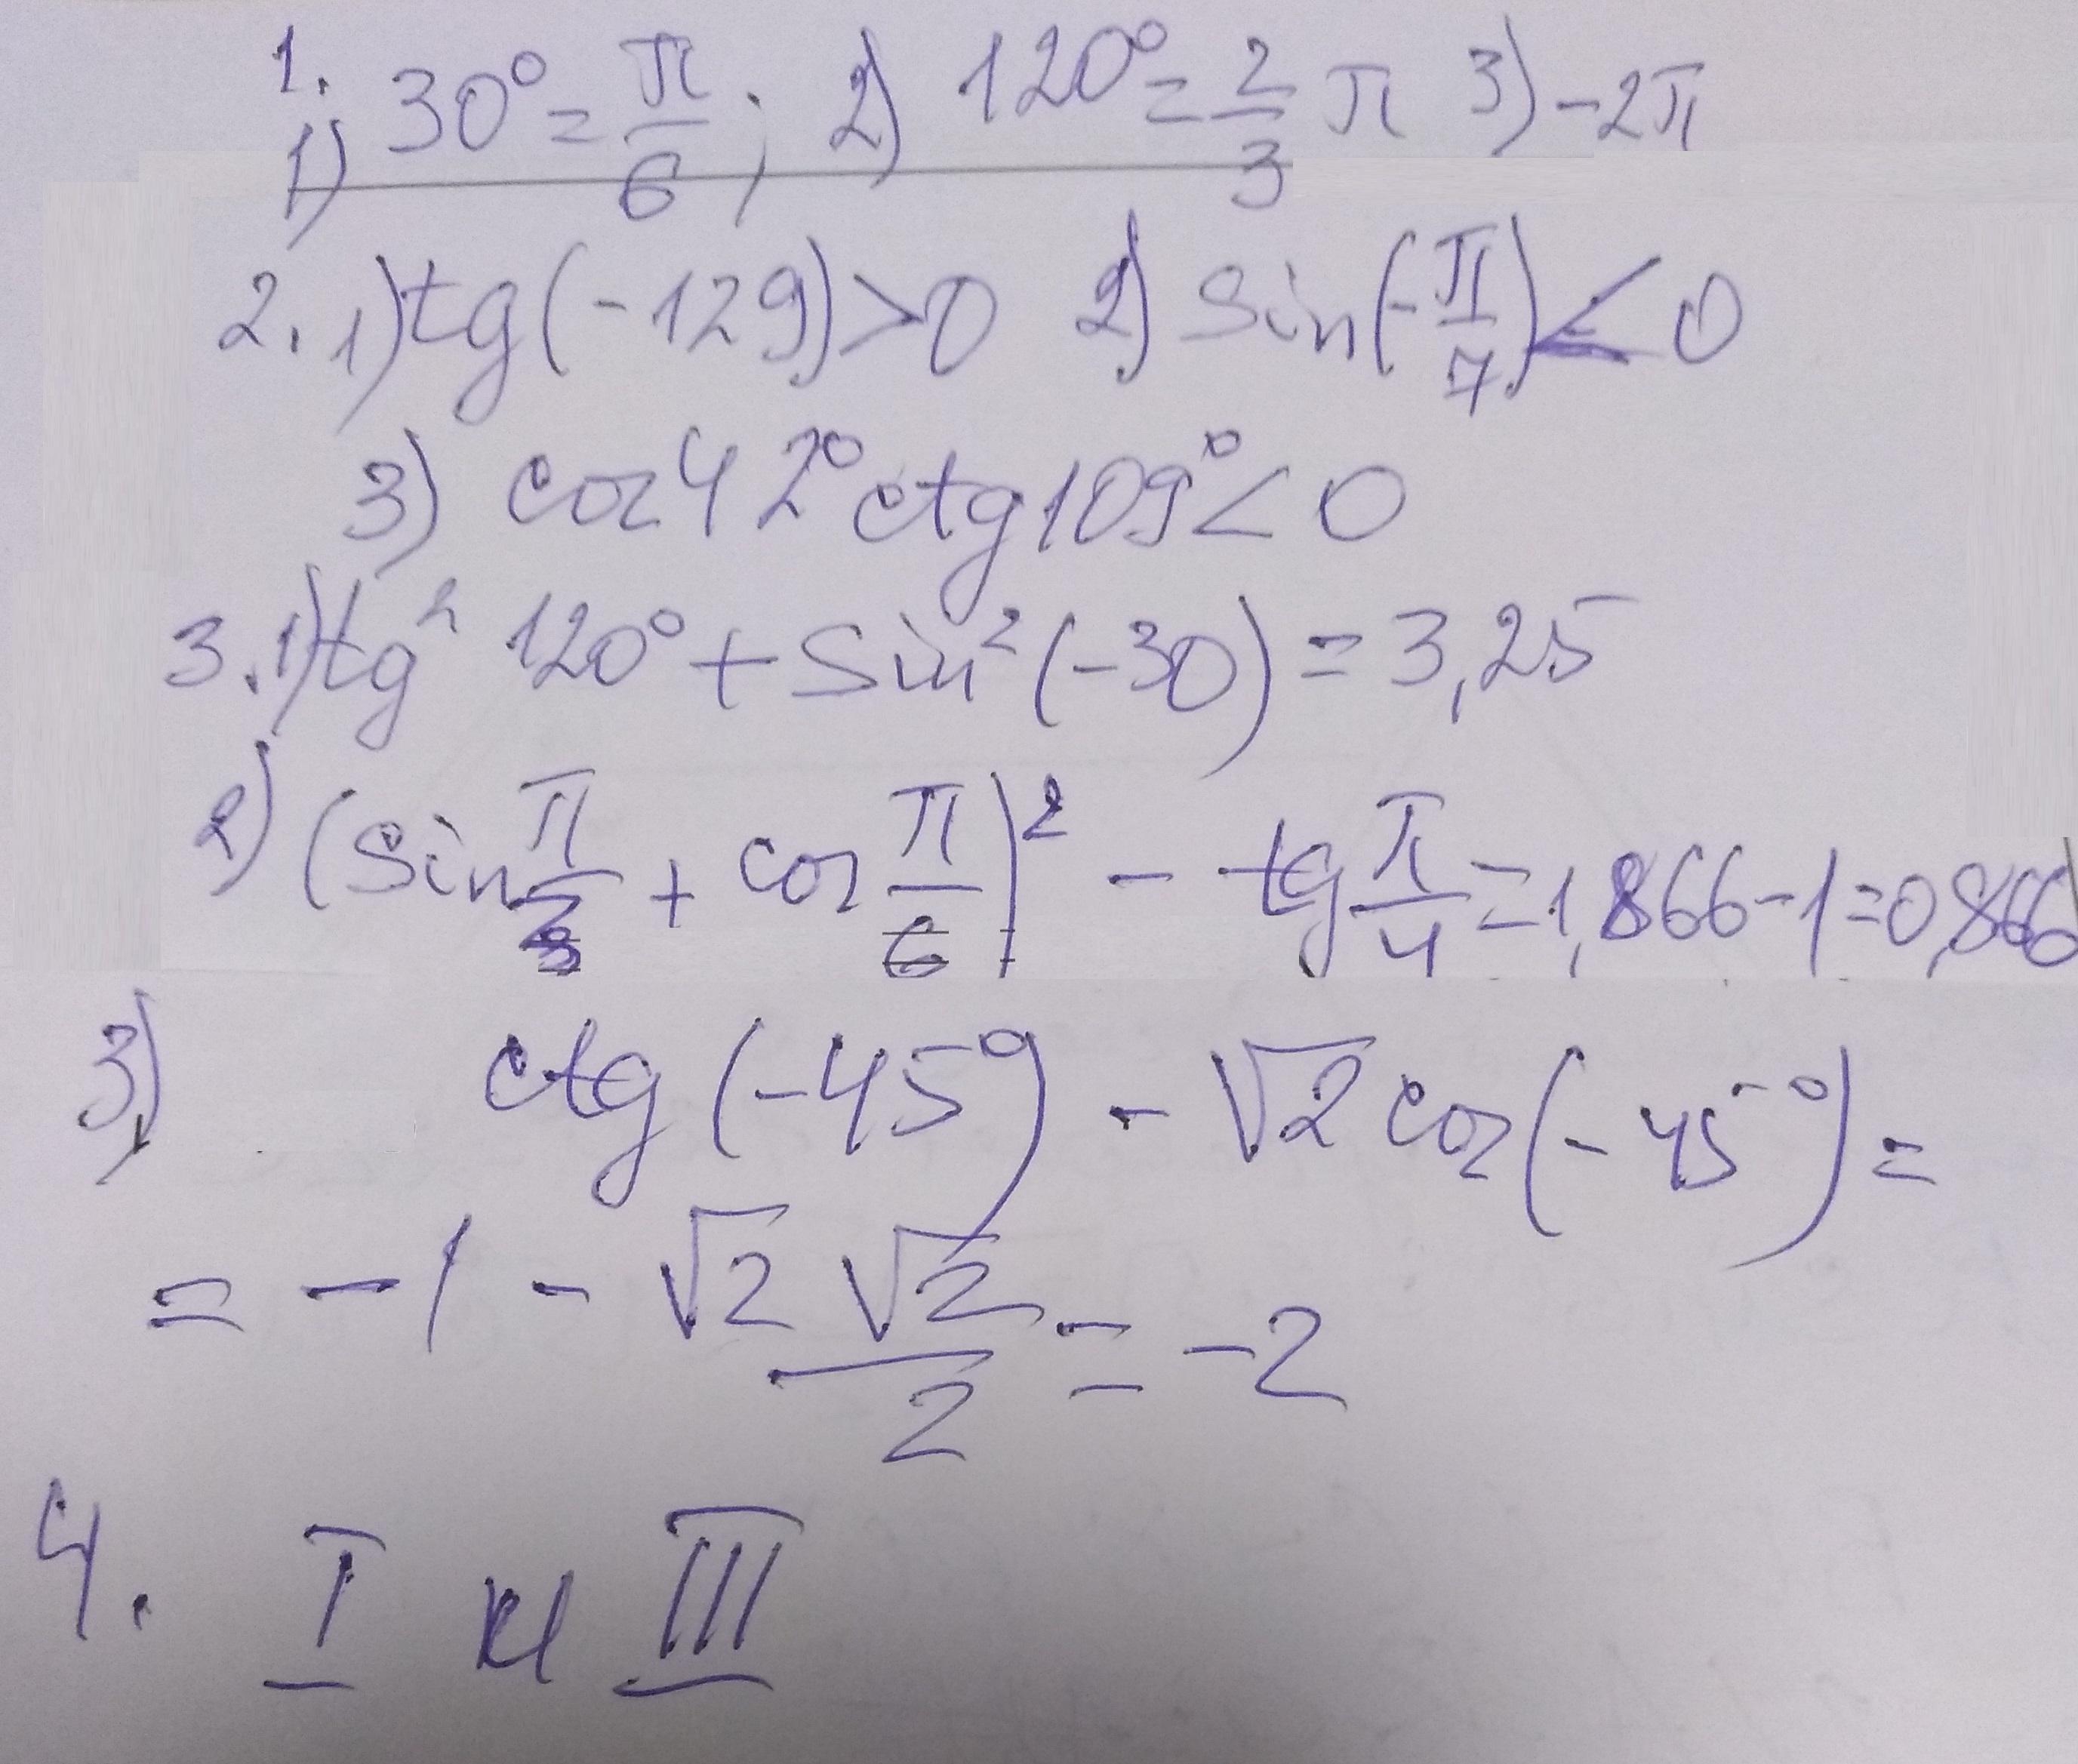 1.
1) 30° = π/6 ; 2) 120° = 2/3 π 3) -2π
2. 1) tg(-129) > 0 2) sin(-π/7) < 0
3) cos 42° ctg 109° < 0
3. 1) tg² 120° + sin² (-30) = 3,25
2) (sin π/3 + cos π/6)² - tg π/4 = 1,866 - 1 = 0,866
3) ctg (-45°) - √2 cos (-45°) =
= -1 - √2 √2/2 = -2
4. I и III